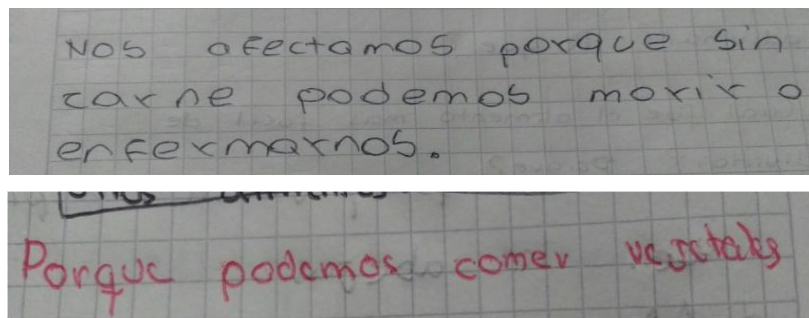 Nos afectamos porque sin
carne podemos morir o
enfermarnos.
Porque podemos comer vegetales